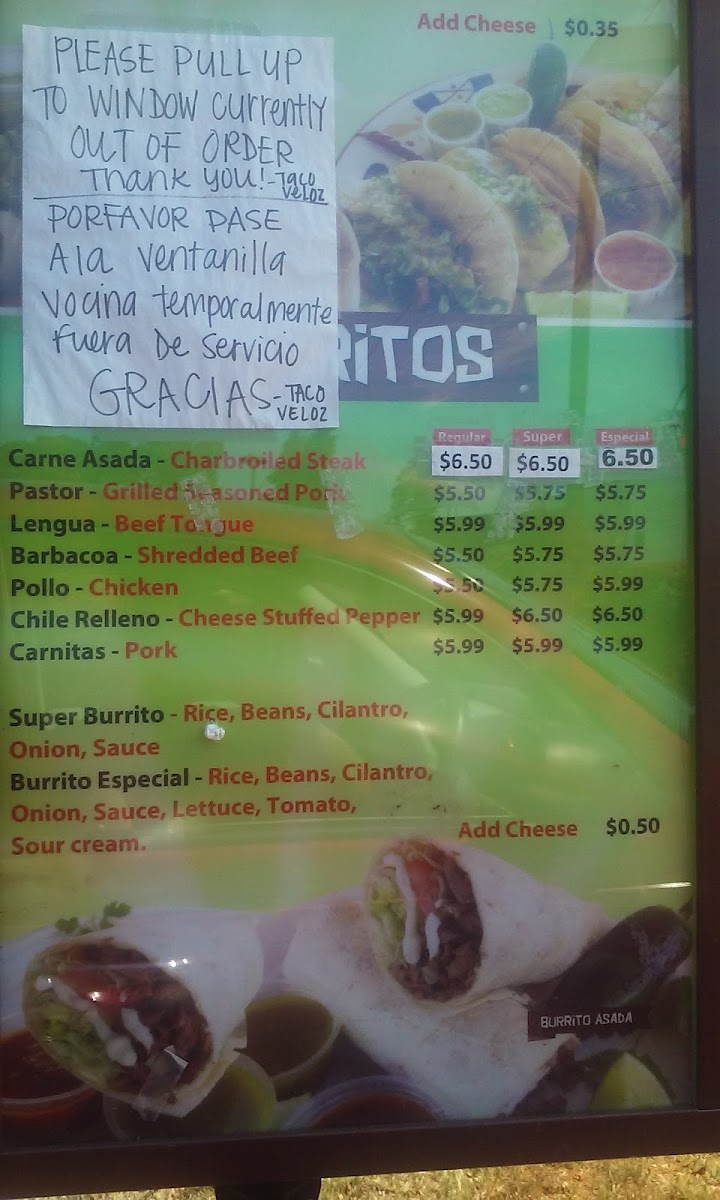 Add Cheese $0.35
PLEASE PULL UP
TO WINDOW currently
OUT OF ORDER
Thank you!-TACO VELOZ
PORFAVOR PASE
A la ventanilla
Vocina temporalmente
fuera De servicio
GRACIAS-TACO VELOZ
RITOS
Regular Super Especial
Carne Asada - Charbroiled Steak $6.50 $6.50 6.50
Pastor - Grilled Seasoned Pork $5.50 $5.75 $5.75
Lengua - Beef Tongue $5.99 $5.99 $5.99
Barbacoa - Shredded Beef $5.50 $5.75 $5.75
Pollo - Chicken $5.50 $5.75 $5.99
Chile Relleno - Cheese Stuffed Pepper $5.99 $6.50 $6.50
Carnitas - Pork $5.99 $5.99 $5.99
Super Burrito - Rice, Beans, Cilantro,
Onion, Sauce
Burrito Especial - Rice, Beans, Cilantro,
Onion, Sauce, Lettuce, Tomato,
Sour cream.
Add Cheese $0.50
BURRITO ASADA